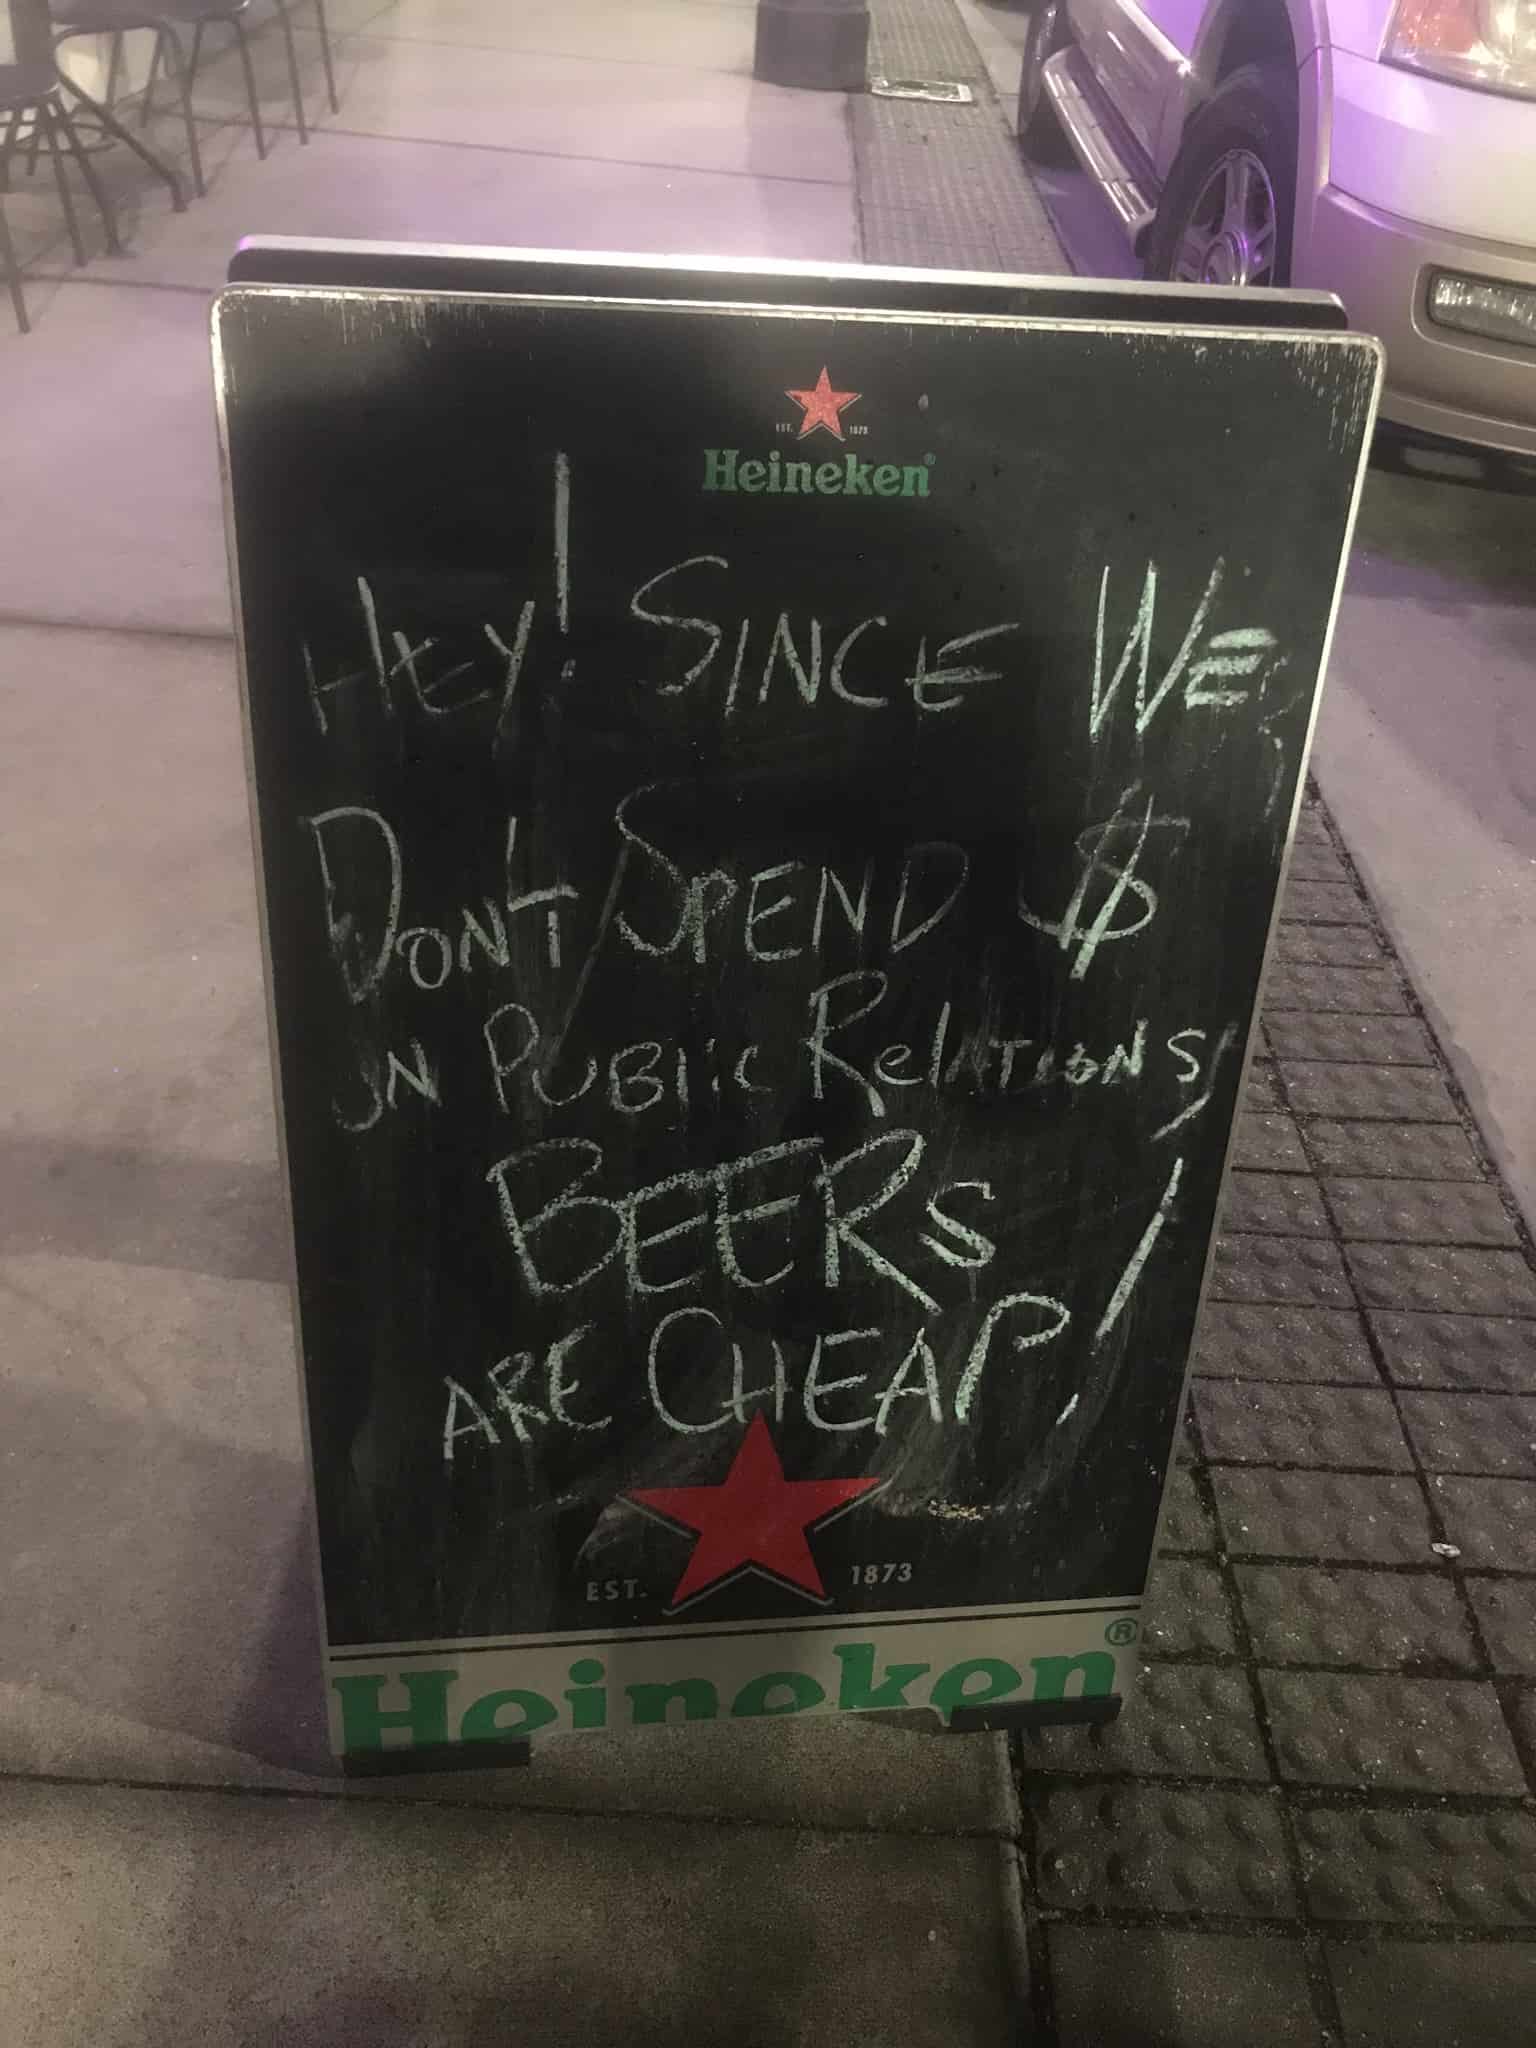 EST. 1873
Heineken®
HEY! SINCE WE
DON'T SPEND $
IN PUBLIC RELATIONS,
BEERS
ARE CHEAP!
EST. 1873
Heineken®